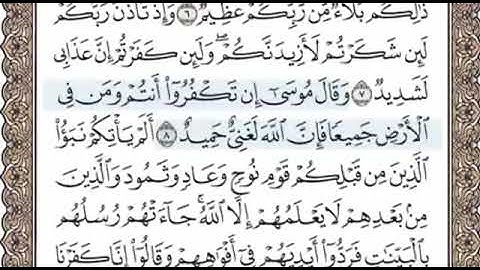 ذَٰلِكُم بَلَآءٌ مِّن رَّبِّكُمْ عَظِيمٌ ٦ وَإِذْ تَأَذَّنَ رَبُّكُمْ
لَئِن شَكَرْتُمْ لَأَزِيدَنَّكُمْ ۖ وَلَئِن كَفَرْتُمْ إِنَّ عَذَابِى
لَشَدِيدٌ ٧ وَقَالَ مُوسَىٰٓ إِن تَكْفُرُوٓا۟ أَنتُمْ وَمَن فِى
ٱلْأَرْضِ جَمِيعًا فَإِنَّ ٱللَّهَ لَغَنِىٌّ حَمِيدٌ ٨ أَلَمْ يَأْتِكُمْ نَبَؤُا۟
ٱلَّذِينَ مِن قَبْلِكُمْ قَوْمِ نُوحٍ وَعَادٍ وَثَمُودَ وَٱلَّذِينَ
مِنۢ بَعْدِهِمْ لَا يَعْلَمُهُمْ إِلَّا ٱللَّهُ ۚ جَآءَتْهُمْ رُسُلُهُم
بِٱلْبَيِّنَٰتِ فَرَدُّوٓا۟ أَيْدِيَهُمْ فِىٓ أَفْوَٰهِهِمْ وَقَالُوٓا۟ إِنَّا كَفَرْنَا